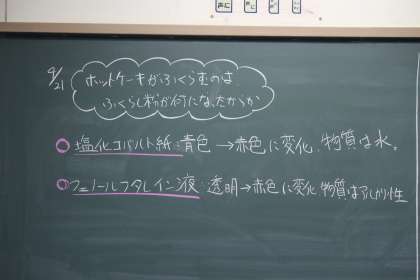 9/21
ホットケーキがふくらむのは
ふくらし粉が何になったからか
塩化コバルト紙:青色→赤色に変化、物質は水。
フェノールフタレイン液:透明→赤色に変化 物質はアルカリ性